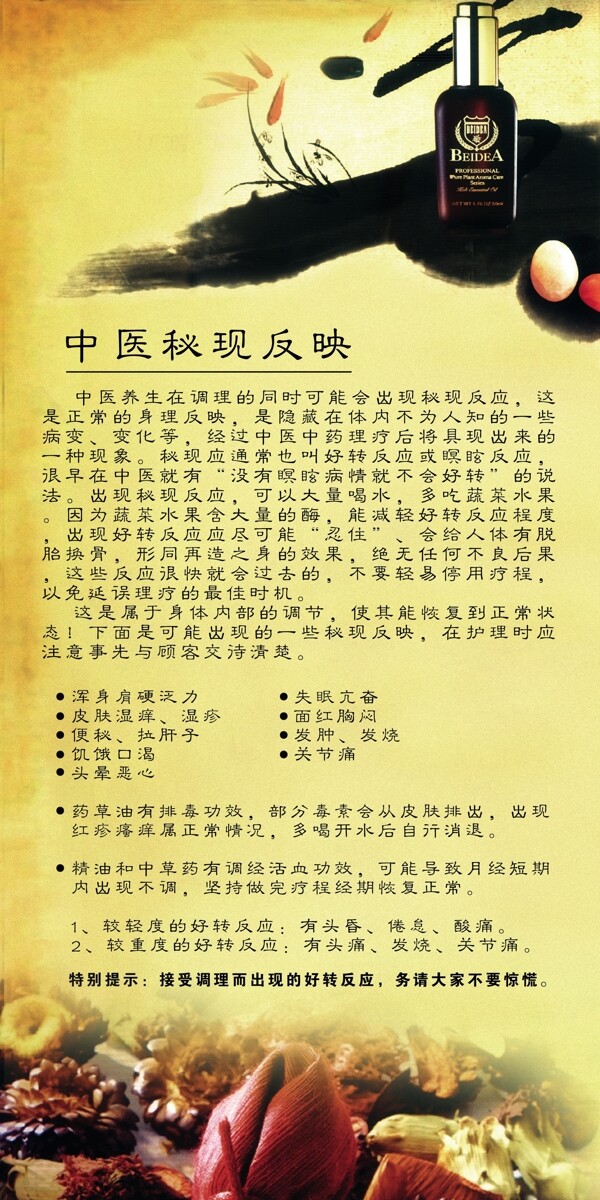 BEIDEA
BEIDEA
PROFESSIONAL
Pure Plant Aroma Care
Series
中医秘现反映
中医养生在调理的同时可能会出现秘现反应，这
是正常的身理反映，是隐藏在体内不为人知的一些
病变、变化等，经过中医中药理疗后将具现出来的
一种现象。秘现应通常也叫好转反应或瞑眩反应，
很早在中医就有“没有瞑眩病情就不会好转”的说
法。出现秘现反应，可以大量喝水，多吃蔬菜水果
。因为蔬菜水果含大量的酶，能减轻好转反应程度
，出现好转反应应尽可能“忍住”、会给人体有脱
胎换骨，形同再造之身的效果，绝无任何不良后果
，这些反应很快就会过去的，不要轻易停用疗程，
以免延误理疗的最佳时机。
这是属于身体内部的调节，使其能恢复到正常状
态！下面是可能出现的一些秘现反映，在护理时应
注意事先与顾客交待清楚。
●浑身肩硬泛力
●皮肤湿痒、湿疹
●便秘、拉肝子
●饥饿口渴
●头晕恶心
●失眠亢奋
●面红胸闷
●发肿、发烧
●关节痛
●药草油有排毒功效，部分毒素会从皮肤排出，出现
红疹瘙痒属正常情况，多喝开水后自行消退。
●精油和中草药有调经活血功效，可能导致月经短期
内出现不调，坚持做完疗程经期恢复正常。
1、较轻度的好转反应：有头昏、倦怠、酸痛。
2、较重度的好转反应：有头痛、发烧、关节痛。
特别提示：接受调理而出现的好转反应，务请大家不要惊慌。